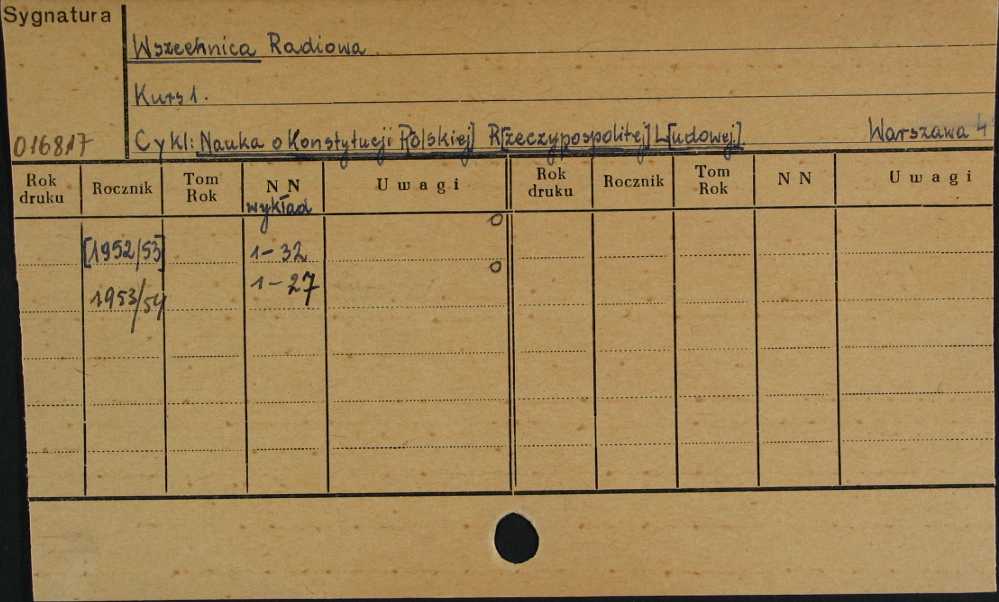 Sygnatura
Wszechnica Radiowa
Kurs 1.
016817 Cykl: Nauka o Konstytucji P[olskiej] R[zeczypospolitej] L[udowej]. Warszawa 4°
Rok druku Rocznik Tom Rok NN wykład Uwagi Rok druku Rocznik Tom Rok NN Uwagi
[1952/53] 1-32
1953/54 1-27